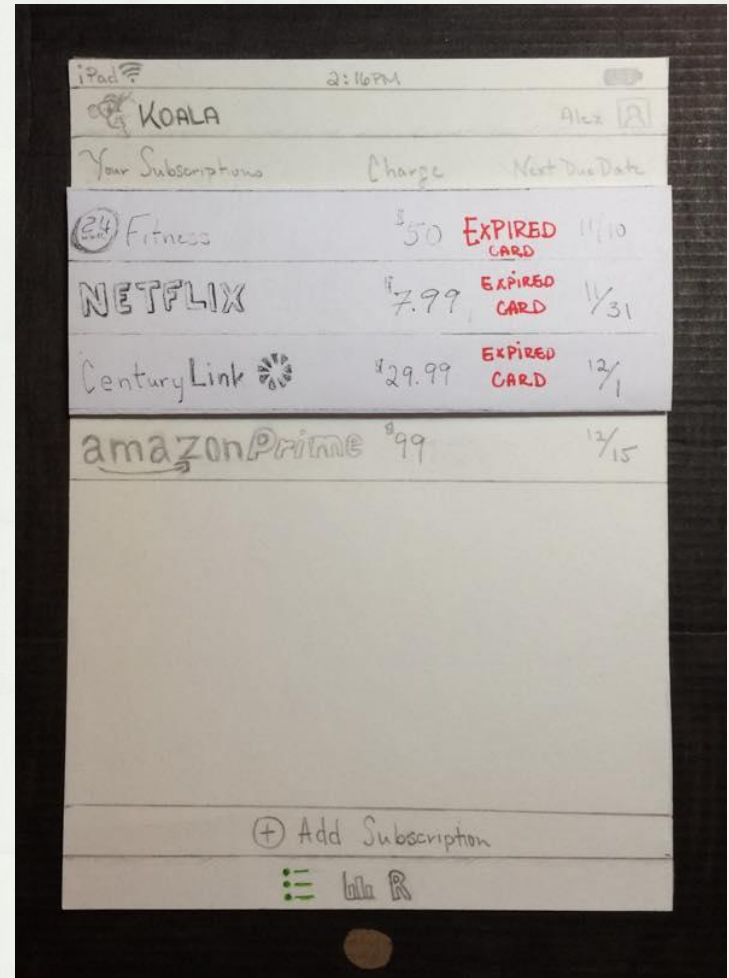 iPad 2:16PM
KOALA Alex
Your Subscriptions Charge Next Due Date
24 Fitness $50 EXPIRED CARD 11/10
NETFLIX $7.99 EXPIRED CARD 11/31
CenturyLink $29.99 EXPIRED CARD 12/1
amazonPrime $99 12/15
+ Add Subscription
R